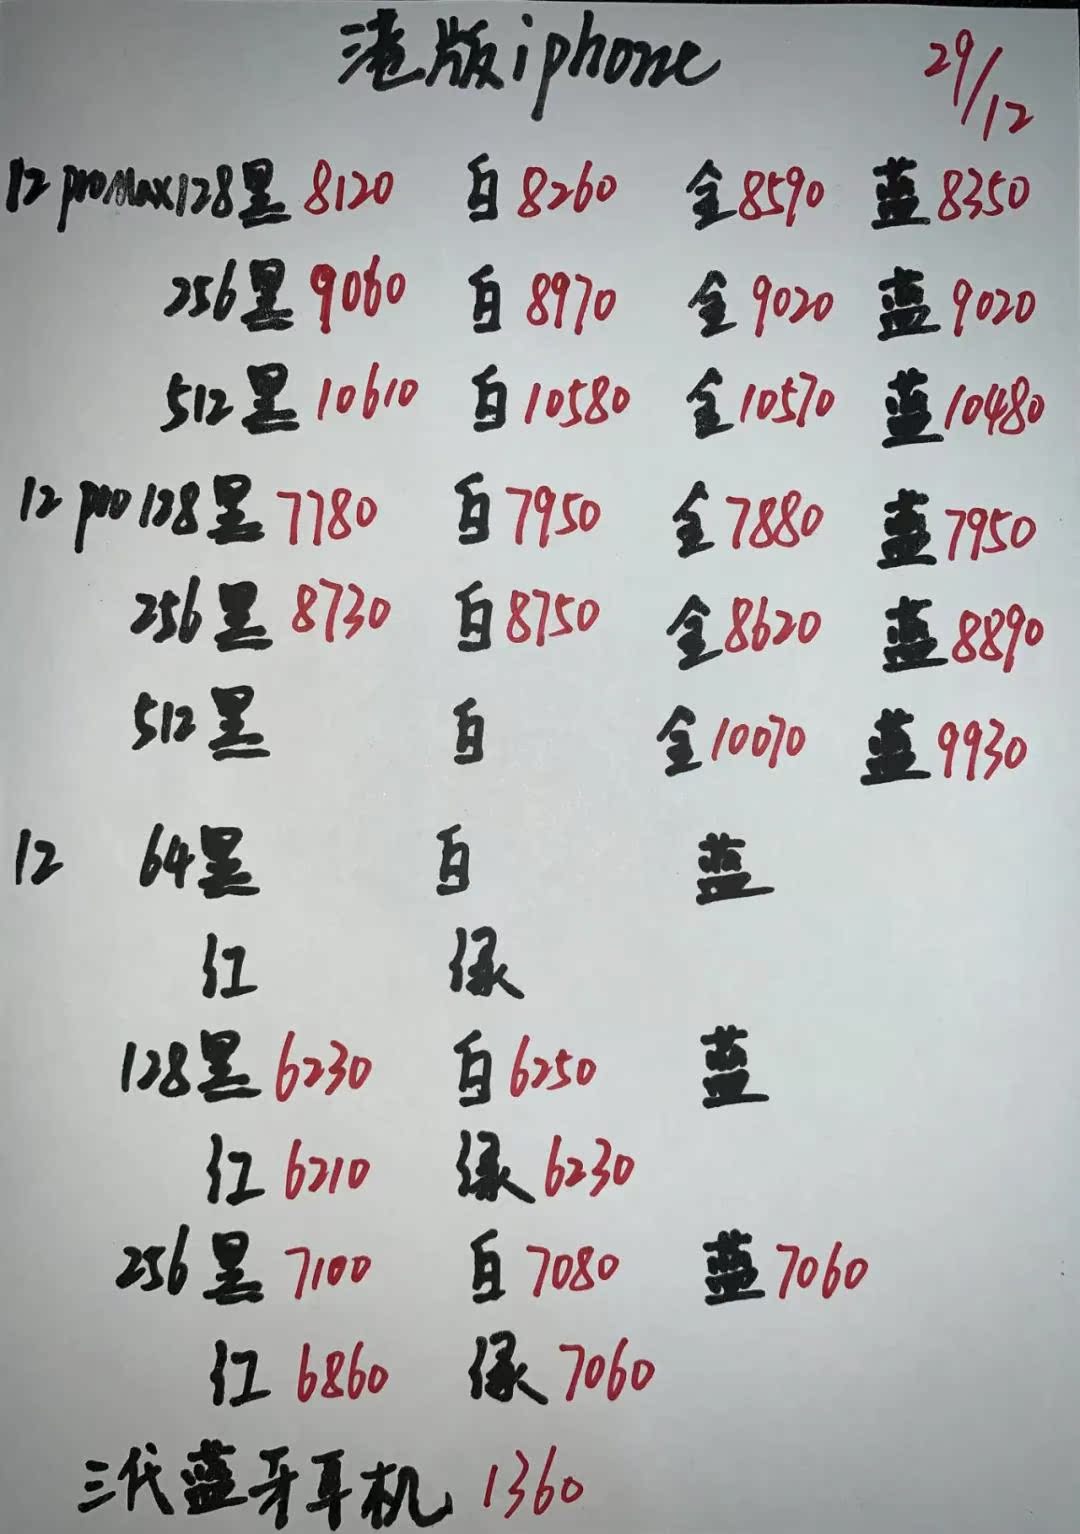 港版iphone 29/12
12 proMax128黑8120 白8260 金8590 蓝8350
256黑9060 白8970 金9020 蓝9020
512黑10610 白10580 金10570 蓝10480
12 pro 128黑7780 白7950 金7880 蓝7950
256黑8730 白8750 金8620 蓝8890
512黑 白 金10070 蓝9930
12 64黑 白 蓝
红 绿
128黑6230 白6250 蓝
红6210 绿6230
256黑7100 白7080 蓝7060
红6860 绿7060
三代蓝牙耳机 1360